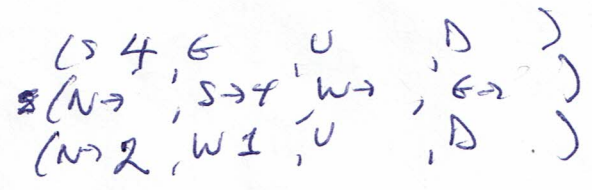 (S 4, E , U , D )
(N→ , S→4, W→ , E→ )
(N→2, W1, U , D . )